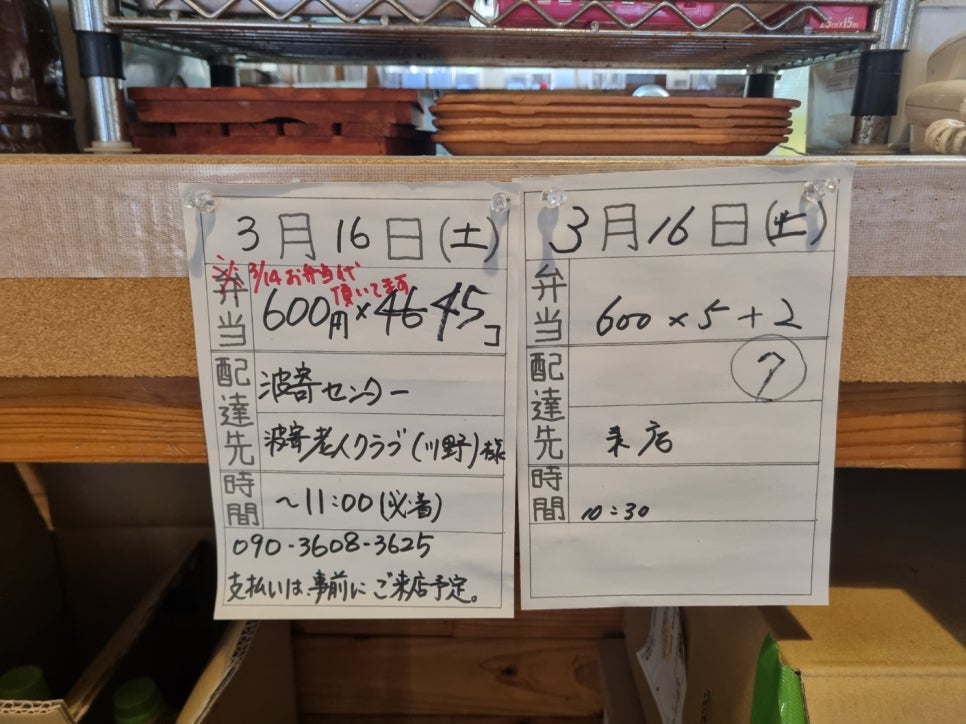 3月16日(土)
※ 3/14お弁当代
頂いてます
弁当
600円×46 45コ
配達先
波寄センター
波寄老人クラブ(川野)様
時間
~11:00(必着)
090-3608-3625
支払いは、事前にご来店予定。
3月16日(土)
弁当
600×5+2
7
配達先
来店
時間
10:30